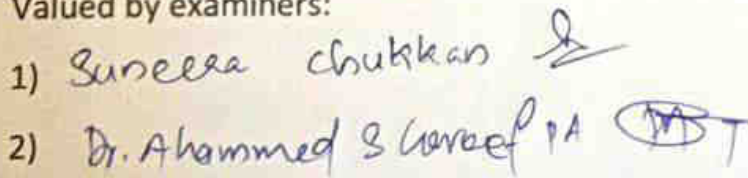 Valued by examiners:
1) Suneera Chukkan
2) Dr. Ahammed Shareef PA